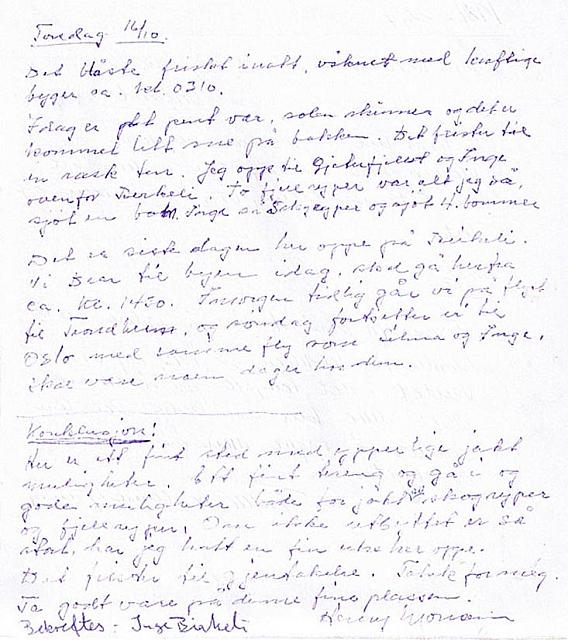 Torsdag 16/10.
Det blåste friskt inatt, våknet med kraftige
byger ca. kl. 0310.
Idag er det pent vær, solen skinner og det er
kommet litt snø på bakken. Det frister til
en rask tur. Jeg oppe til og Inge
ovenfor. To fjellryper var alt jeg så,
sjøt en bom. Inge så 5 skogryper og sjøt 4. bommer
Det er siste dagen her oppe på
Vi drar til byen idag, skal gå herfra
ca. kl. 1450. Imorgen tidlig går vi på flyet
til Trondheim, og søndag fortsetter vi til
Oslo med samme fly som og Inge,
skal være noen dager hos dem.
Konklusjon!
Her er ett fint sted med ypperlige jakt
muligheter. Ett fint tereng og gå i og
gode muligheter både for jakt på skogryper
og fjellryper, Om ikke utbyttet er så
stort, har jeg hatt en fin uke her oppe.
Det frister til gjentakelse. Takk for meg.
Ta godt vare på denne fine plassen.
Bekreftes - Inge